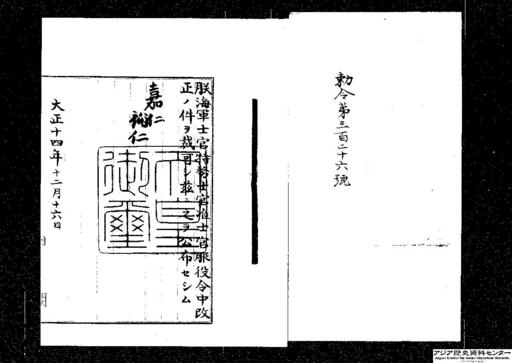 勅令第三百二十六號
朕海軍士官特務士官准士官服役令中改
正ノ件ヲ裁可シ茲ニ之ヲ公布セシム
嘉仁
裕仁
天皇
御璽
大正十四年十二月十六日
アジア歴史資料センター
Japan Center for Asian Historical Records